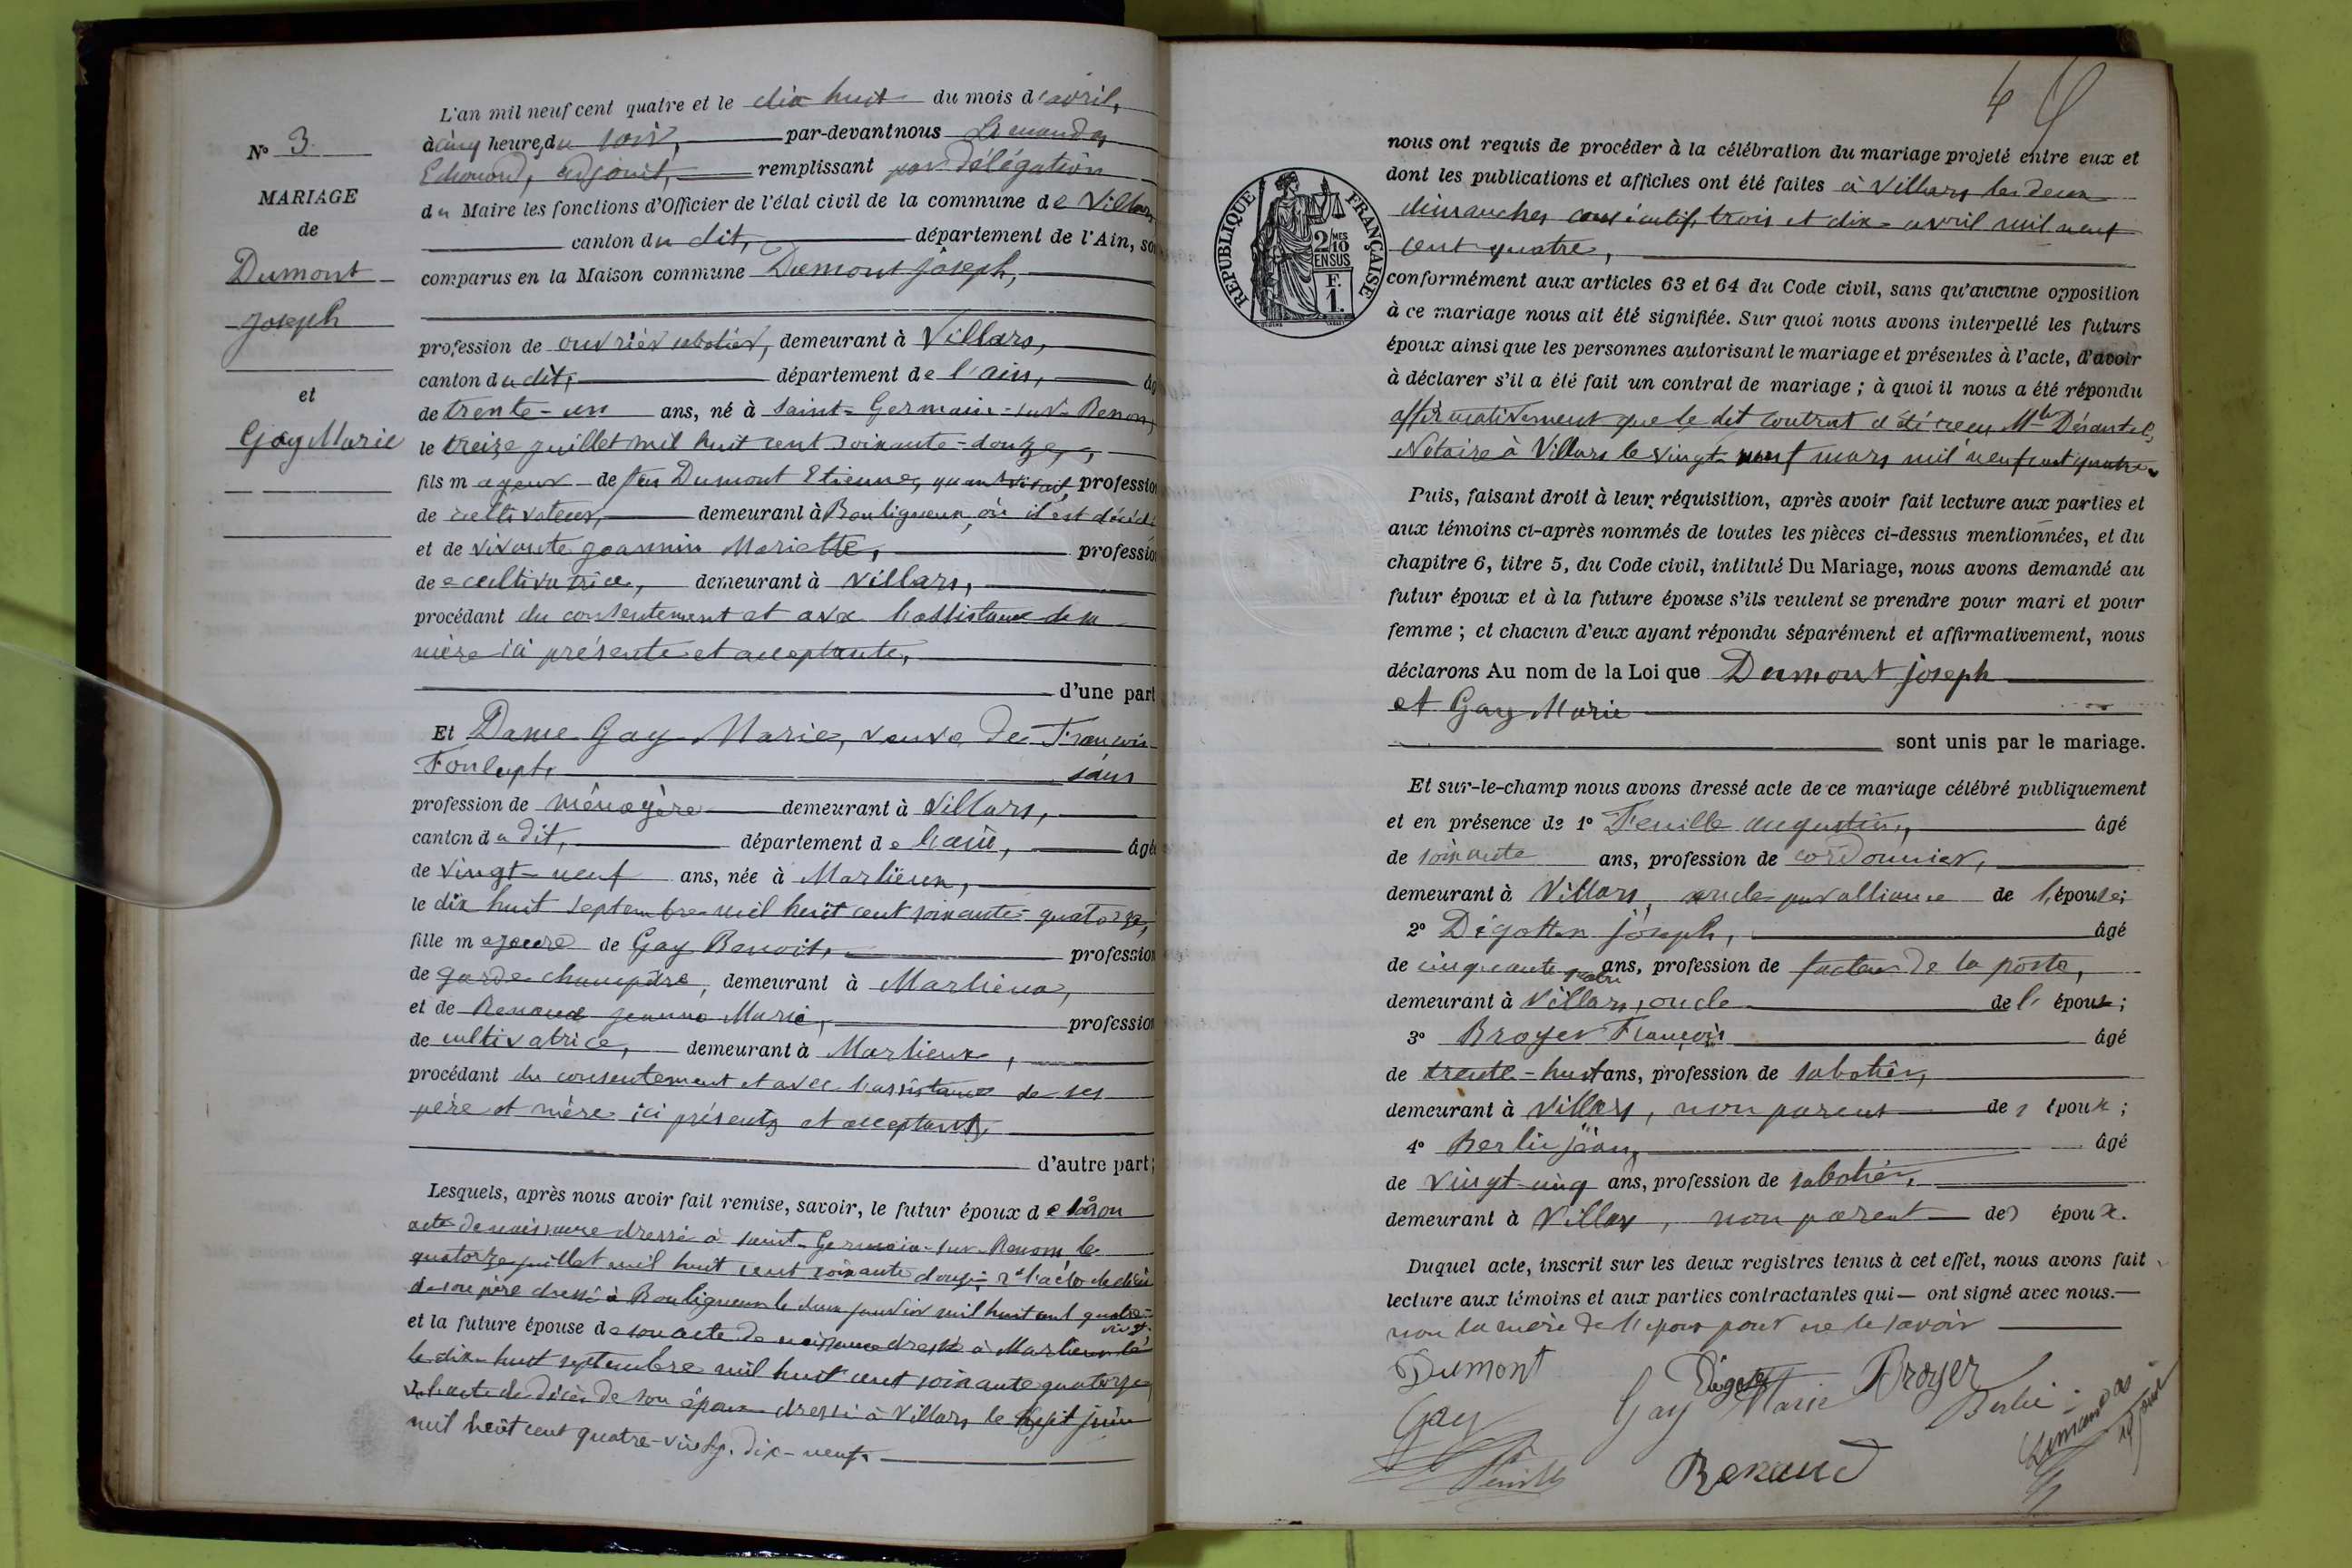 N° 3
MARIAGE
de
Dumont
Joseph
et
Gay Marie
L'an mil neuf cent quatre et le dix huit du mois d'avril,
à cinq heures du soir, par-devant nous Limandas
Edouard, adjoint, remplissant par délégation
du Maire les fonctions d'Officier de l'état civil de la commune de Villars
canton du dit, département de l'Ain, so
comparus en la Maison commune Dumont Joseph,
profession de ouvrier sabotier, demeurant à Villars,
canton du dit, département de l'ain, âg
de trente-un ans, né à Saint-Germain-sur-Renon,
le treize juillet mil huit cent soixante-douze,
fils majeur de feu Dumont Etienne, quand vivait, profession
de cultivateur, demeurant à Bouligneux où il est décédé
et de vivante Joannin Mariette, profession
de cultivatrice, demeurant à Villars,
procédant du consentement et avec l'assistance de sa
mère ici présente et acceptante,
d'une part
Et Dame Gay Marie, veuve de François
sans
profession de ménagère demeurant à Villars,
canton du dit, département de l'ain, âgé
de vingt-neuf ans, née à Marlieux,
le dix huit septembre mil huit cent soixante-quatorze,
fille majeure de Gay Benoit, profession
de garde champêtre, demeurant à Marlieux,
et de Renaud Jeanne Marie, profession
de cultivatrice, demeurant à Marlieux,
procédant du consentement et avec l'assistance de ses
père et mère ici présents et acceptants,
d'autre part;
Lesquels, après nous avoir fait remise, savoir, le futur époux de 1° son
acte de naissance dressé à Saint-Germain-sur-Renom le
quatorze juillet mil huit cent soixante douze; 2° l'acte de décès
de son père dressé à Bouligneux le deux janvier mil huit cent quatre-
vingt
et la future épouse de son acte de naissance dressé à Marlieux le
le dix-huit septembre mil huit cent soixante quatorze
2° l'acte de décès de son époux dressé à Villars le sept juin
mil huit cent quatre-vingt-dix-neuf.
4
nous ont requis de procéder à la célébration du mariage projeté entre eux et
dont les publications et affiches ont été faites à Villars les deux
dimanches consécutifs trois et dix avril mil neuf
cent quatre,
REPUBLIQUE FRANÇAISE
2/10 MES
EN SUS
F.
1.
conformément aux articles 63 et 64 du Code civil, sans qu'aucune opposition
à ce mariage nous ait été signifiée. Sur quoi nous avons interpellé les futurs
époux ainsi que les personnes autorisant le mariage et présentes à l'acte, d'avoir
à déclarer s'il a été fait un contrat de mariage; à quoi il nous a été répondu
affirmativement que le dit contrat a été reçu
Notaire à Villars le vingt neuf mars mil neuf cent quatre
Puis, faisant droit à leur réquisition, après avoir fait lecture aux parties et
aux témoins ci-après nommés de toutes les pièces ci-dessus mentionnées, et du
chapitre 6, titre 5, du Code civil, intitulé Du Mariage, nous avons demandé au
futur époux et à la future épouse s'ils veulent se prendre pour mari et pour
femme; et chacun d'eux ayant répondu séparément et affirmativement, nous
déclarons Au nom de la Loi que Dumont Joseph
et Gay Marie
sont unis par le mariage.
Et sur-le-champ nous avons dressé acte de ce mariage célébré publiquement
et en présence de 1° Feuille Augustin, âgé
de soixante ans, profession de cordonnier,
demeurant à Villars, oncle par alliance de l'épouse;
2° Joseph, âgé
de cinquante quatre ans, profession de facteur de la poste,
demeurant à Villars, oncle de l'époux;
3° Broyer François âgé
de trente-huit ans, profession de sabotier,
demeurant à Villars, non parent des époux;
4° Berlie Jean, âgé
de vingt-cinq ans, profession de sabotier,
demeurant à Villars, non parent des époux.
Duquel acte, inscrit sur les deux registres tenus à cet effet, nous avons fait
lecture aux témoins et aux parties contractantes qui — ont signé avec nous.—
non la mère de l'époux pour ne le savoir
Dumont
Gay Marie Broyer
Gay
Berlie
Feuille
Renaud
Limandas
adjoint